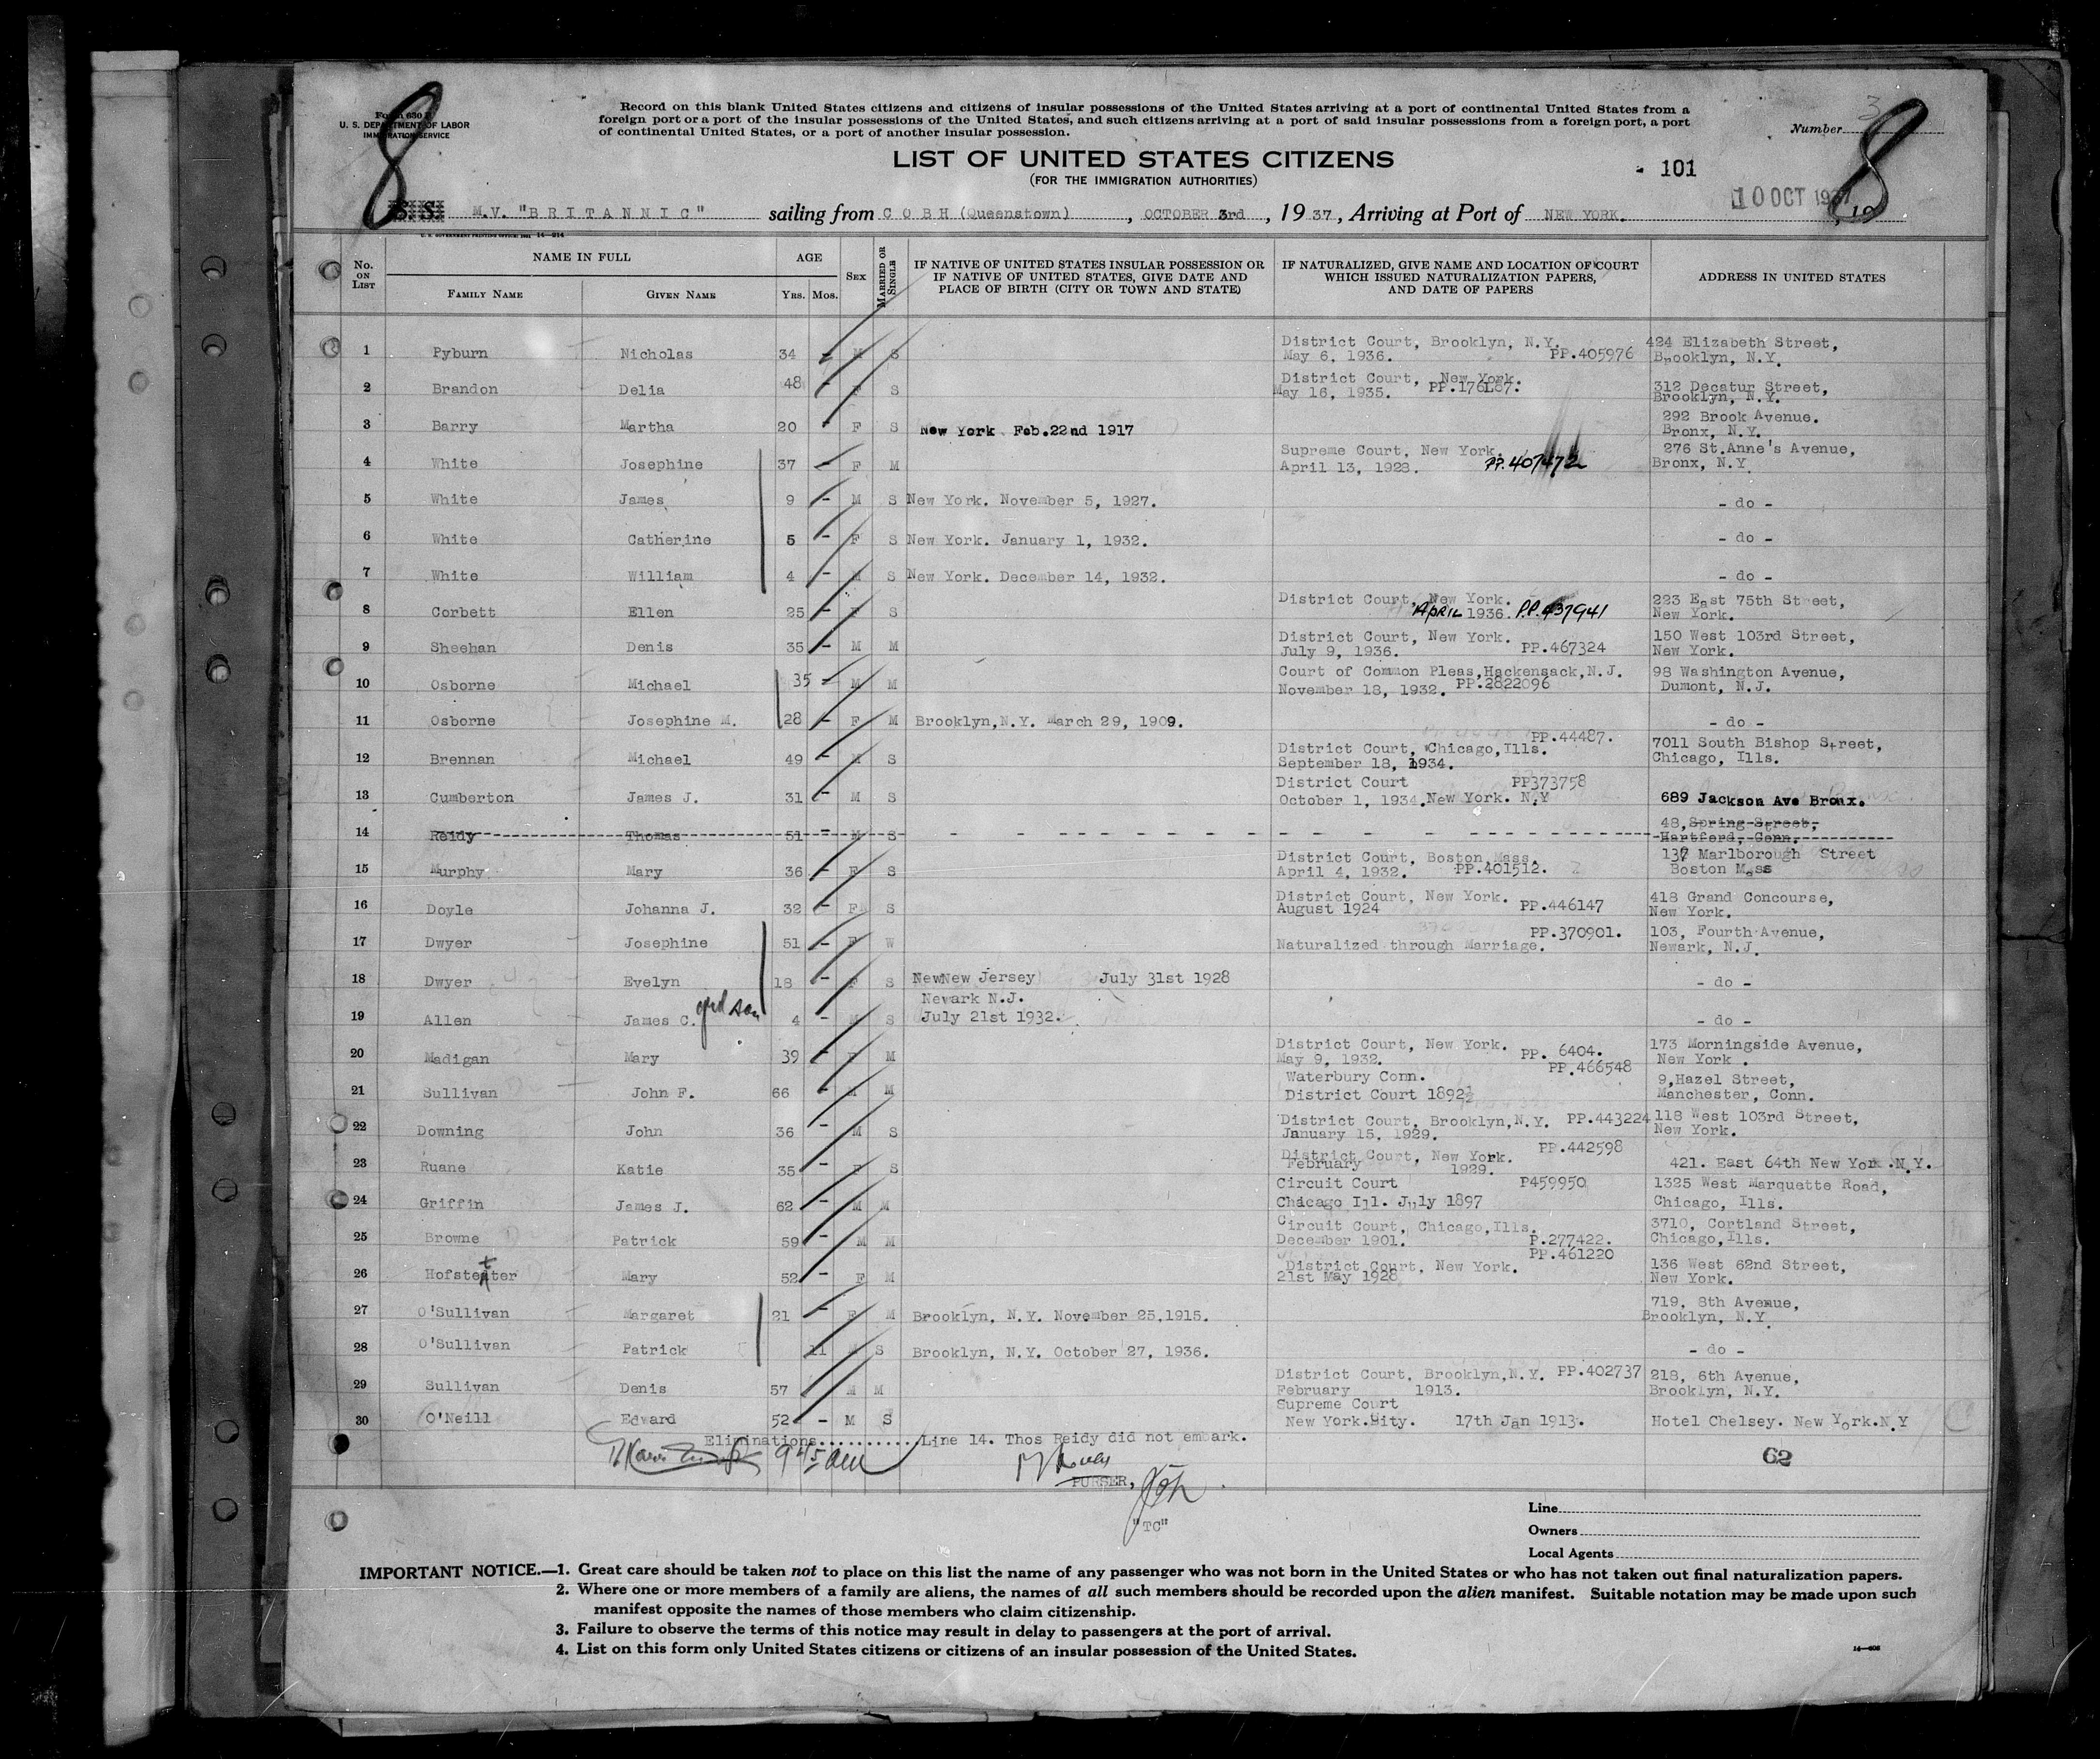 8
Form 630 F
U. S. DEPARTMENT OF LABOR
IMMIGRATION SERVICE
Record on this blank United States citizens and citizens of insular possessions of the United States arriving at a port of continental United States from a
foreign port or a port of the insular possessions of the United States, and such citizens arriving at a port of said insular possessions from a foreign port, a port
of continental United States, or a port of another insular possession.
Number 3
8
LIST OF UNITED STATES CITIZENS
(FOR THE IMMIGRATION AUTHORITIES)
- 101
10 OCT 1937
S. S. M.V. "BRITANNIC" sailing from COBH (Queenstown), OCTOBER 3rd, 1937, Arriving at Port of NEW YORK. , 19
U. S. GOVERNMENT PRINTING OFFICE: 1931 14—214
No. ON LIST
NAME IN FULL
FAMILY NAME GIVEN NAME
AGE
YRS. MOS.
SEX
MARRIED OR SINGLE
IF NATIVE OF UNITED STATES INSULAR POSSESSION OR
IF NATIVE OF UNITED STATES, GIVE DATE AND
PLACE OF BIRTH (CITY OR TOWN AND STATE)
IF NATURALIZED, GIVE NAME AND LOCATION OF COURT
WHICH ISSUED NATURALIZATION PAPERS,
AND DATE OF PAPERS
ADDRESS IN UNITED STATES
1 Pyburn Nicholas 34 - M S District Court, Brooklyn, N.Y. May 6, 1936. PP.405976 424 Elizabeth Street, Brooklyn, N.Y.
2 Brandon Delia 48 - F S District Court, New York. May 16, 1935. PP.176L87. 312 Decatur Street, Brooklyn, N.Y.
3 Barry Martha 20 - F S New York Feb.22nd 1917 292 Brook Avenue. Bronx, N.Y.
4 White Josephine 37 - F M Supreme Court, New York. April 13, 1928. PP.407472 276 St.Anne's Avenue, Bronx, N.Y
5 White James 9 - M S New York. November 5, 1927. - do -
6 White Catherine 5 - F S New York. January 1, 1932. - do -
7 White William 4 - M S New York. December 14, 1932. - do -
8 Corbett Ellen 25 - F S District Court, New York. APRIL 1936. P.P.437941 223 East 75th Street, New York.
9 Sheehan Denis 35 - M M District Court, New York. July 9, 1936. PP.467324 150 West 103rd Street, New York.
10 Osborne Michael 35 - M M Court of Common Pleas, Hackensack, N.J. November 18, 1932. PP.2822096 98 Washington Avenue, Dumont, N.J.
11 Osborne Josephine M. 28 - F M Brooklyn, N.Y. March 29, 1909. - do -
12 Brennan Michael 49 - M S PP.44487. District Court, Chicago, Ills. September 18, 1934. 7011 South Bishop Street, Chicago, Ills.
13 Cumberton James J. 31 - M S District Court PP373758 October 1, 1934. New York. N.Y 689 Jackson Ave Bronx.
14 Reidy Thomas 51 - M S - - - - 48, Spring Street, Hartford, Conn.
15 Murphy Mary 36 - F S District Court, Boston, Mass. April 4, 1932. PP.401512. 137 Marlborough Street Boston Mass
16 Doyle Johanna J. 32 - F S District Court, New York. August 1924 PP.446147 418 Grand Concourse, New York.
17 Dwyer Josephine 51 - F W PP.370901. Naturalized through Marriage. 103, Fourth Avenue, Newark, N.J.
18 Dwyer Evelyn 18 - F S NewNew Jersey July 31st 1928 - do -
19 Allen James C. grd son 4 - M S Newark N.J. July 21st 1932. - do -
20 Madigan Mary 39 - F M District Court, New York. May 9, 1932. PP. 6404. 173 Morningside Avenue, New York .
21 Sullivan John F. 66 - M M Waterbury Conn. PP.466548 District Court 1892½ 9, Hazel Street, Manchester, Conn.
22 Downing John 36 - M S District Court, Brooklyn, N.Y. PP.443224 January 15, 1929. 118 West 103rd Street, New York.
23 Ruane Katie 35 - F S PP.442598 District Court, New York. February 1929. 421. East 64th New York .N.Y.
24 Griffin James J. 62 - M M Circuit Court P459950 Chicago Ill. July 1897 1325 West Marquette Road, Chicago, Ills.
25 Browne Patrick 59 - M M Circuit Court, Chicago, Ills. December 1901. P.277422. 3710, Cortland Street, Chicago, Ills.
26 Hofstetter Mary 52 - F M PP.461220 District Court, New York. 21st May 1928 136 West 62nd Street, New York.
27 O'Sullivan Margaret 21 - F M Brooklyn, N.Y. November 25, 1915. 719, 8th Avenue, Brooklyn, N.Y.
28 O'Sullivan Patrick 11 M S Brooklyn, N.Y. October 27, 1936. - do -
29 Sullivan Denis 57 M M District Court, Brooklyn, N.Y. PP.402737 February 1913. 218, 6th Avenue, Brooklyn, N.Y.
30 O'Neill Edward 52 - M S Supreme Court New York.City. 17th Jan 1913. Hotel Chelsey. New York.N.Y
Eliminations........... Line 14. Thos Reidy did not embark.
9 45 am
62
PURSER,
"TC"
Line
Owners
Local Agents
IMPORTANT NOTICE.—1. Great care should be taken not to place on this list the name of any passenger who was not born in the United States or who has not taken out final naturalization papers.
2. Where one or more members of a family are aliens, the names of all such members should be recorded upon the alien manifest. Suitable notation may be made upon such
manifest opposite the names of those members who claim citizenship.
3. Failure to observe the terms of this notice may result in delay to passengers at the port of arrival.
4. List on this form only United States citizens or citizens of an insular possession of the United States.